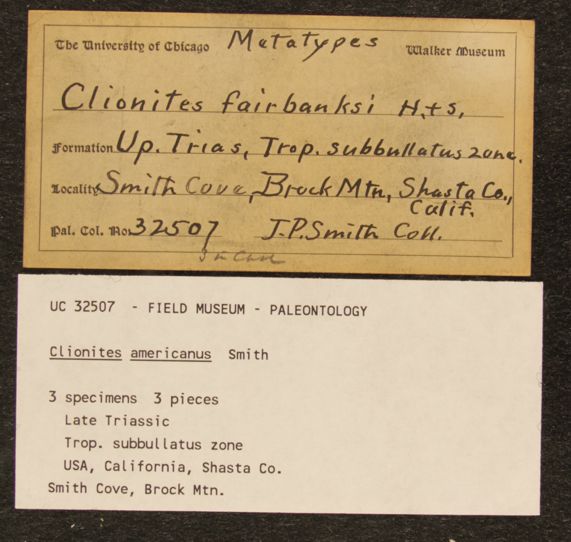 The University of Chicago Metatypes Walker Museum
Clionites fairbanksi H.+s,
Formation Up. Trias, Trop. subbullatus zone.
Locality Smith Cove, Brock Mtn, Shasta Co.,
Calif.
Pal. Col. No. 32507 J.P. Smith Coll.
UC 32507 - FIELD MUSEUM - PALEONTOLOGY
Clionites americanus Smith
3 specimens 3 pieces
Late Triassic
Trop. subbullatus zone
USA, California, Shasta Co.
Smith Cove, Brock Mtn.